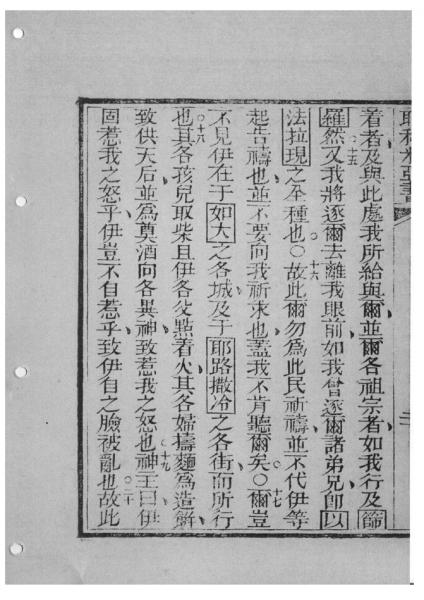 耶利米亞書
着者及與此處我所給與爾並爾各祖宗者如我行及篩
十五
羅然又我將逐爾去離我眼前如我曾逐爾諸弟兄即以
法拉現之全種也○故此爾勿為此民祈禱並不代伊等
十六
起告禱也並不要向我祈求也蓋我不肯聽爾矣○爾豈
十七
不見伊在于如大之各城及于耶路撒冷之各街而所行
十八
也其各孩兒取柴且伊各父點着火其各婦擣麵為造餅
致供天后並為奠酒向各異神致惹我之怒也神王曰伊
十九
固惹我之怒乎伊豈不自惹乎致伊自之臉被亂也故此
二十